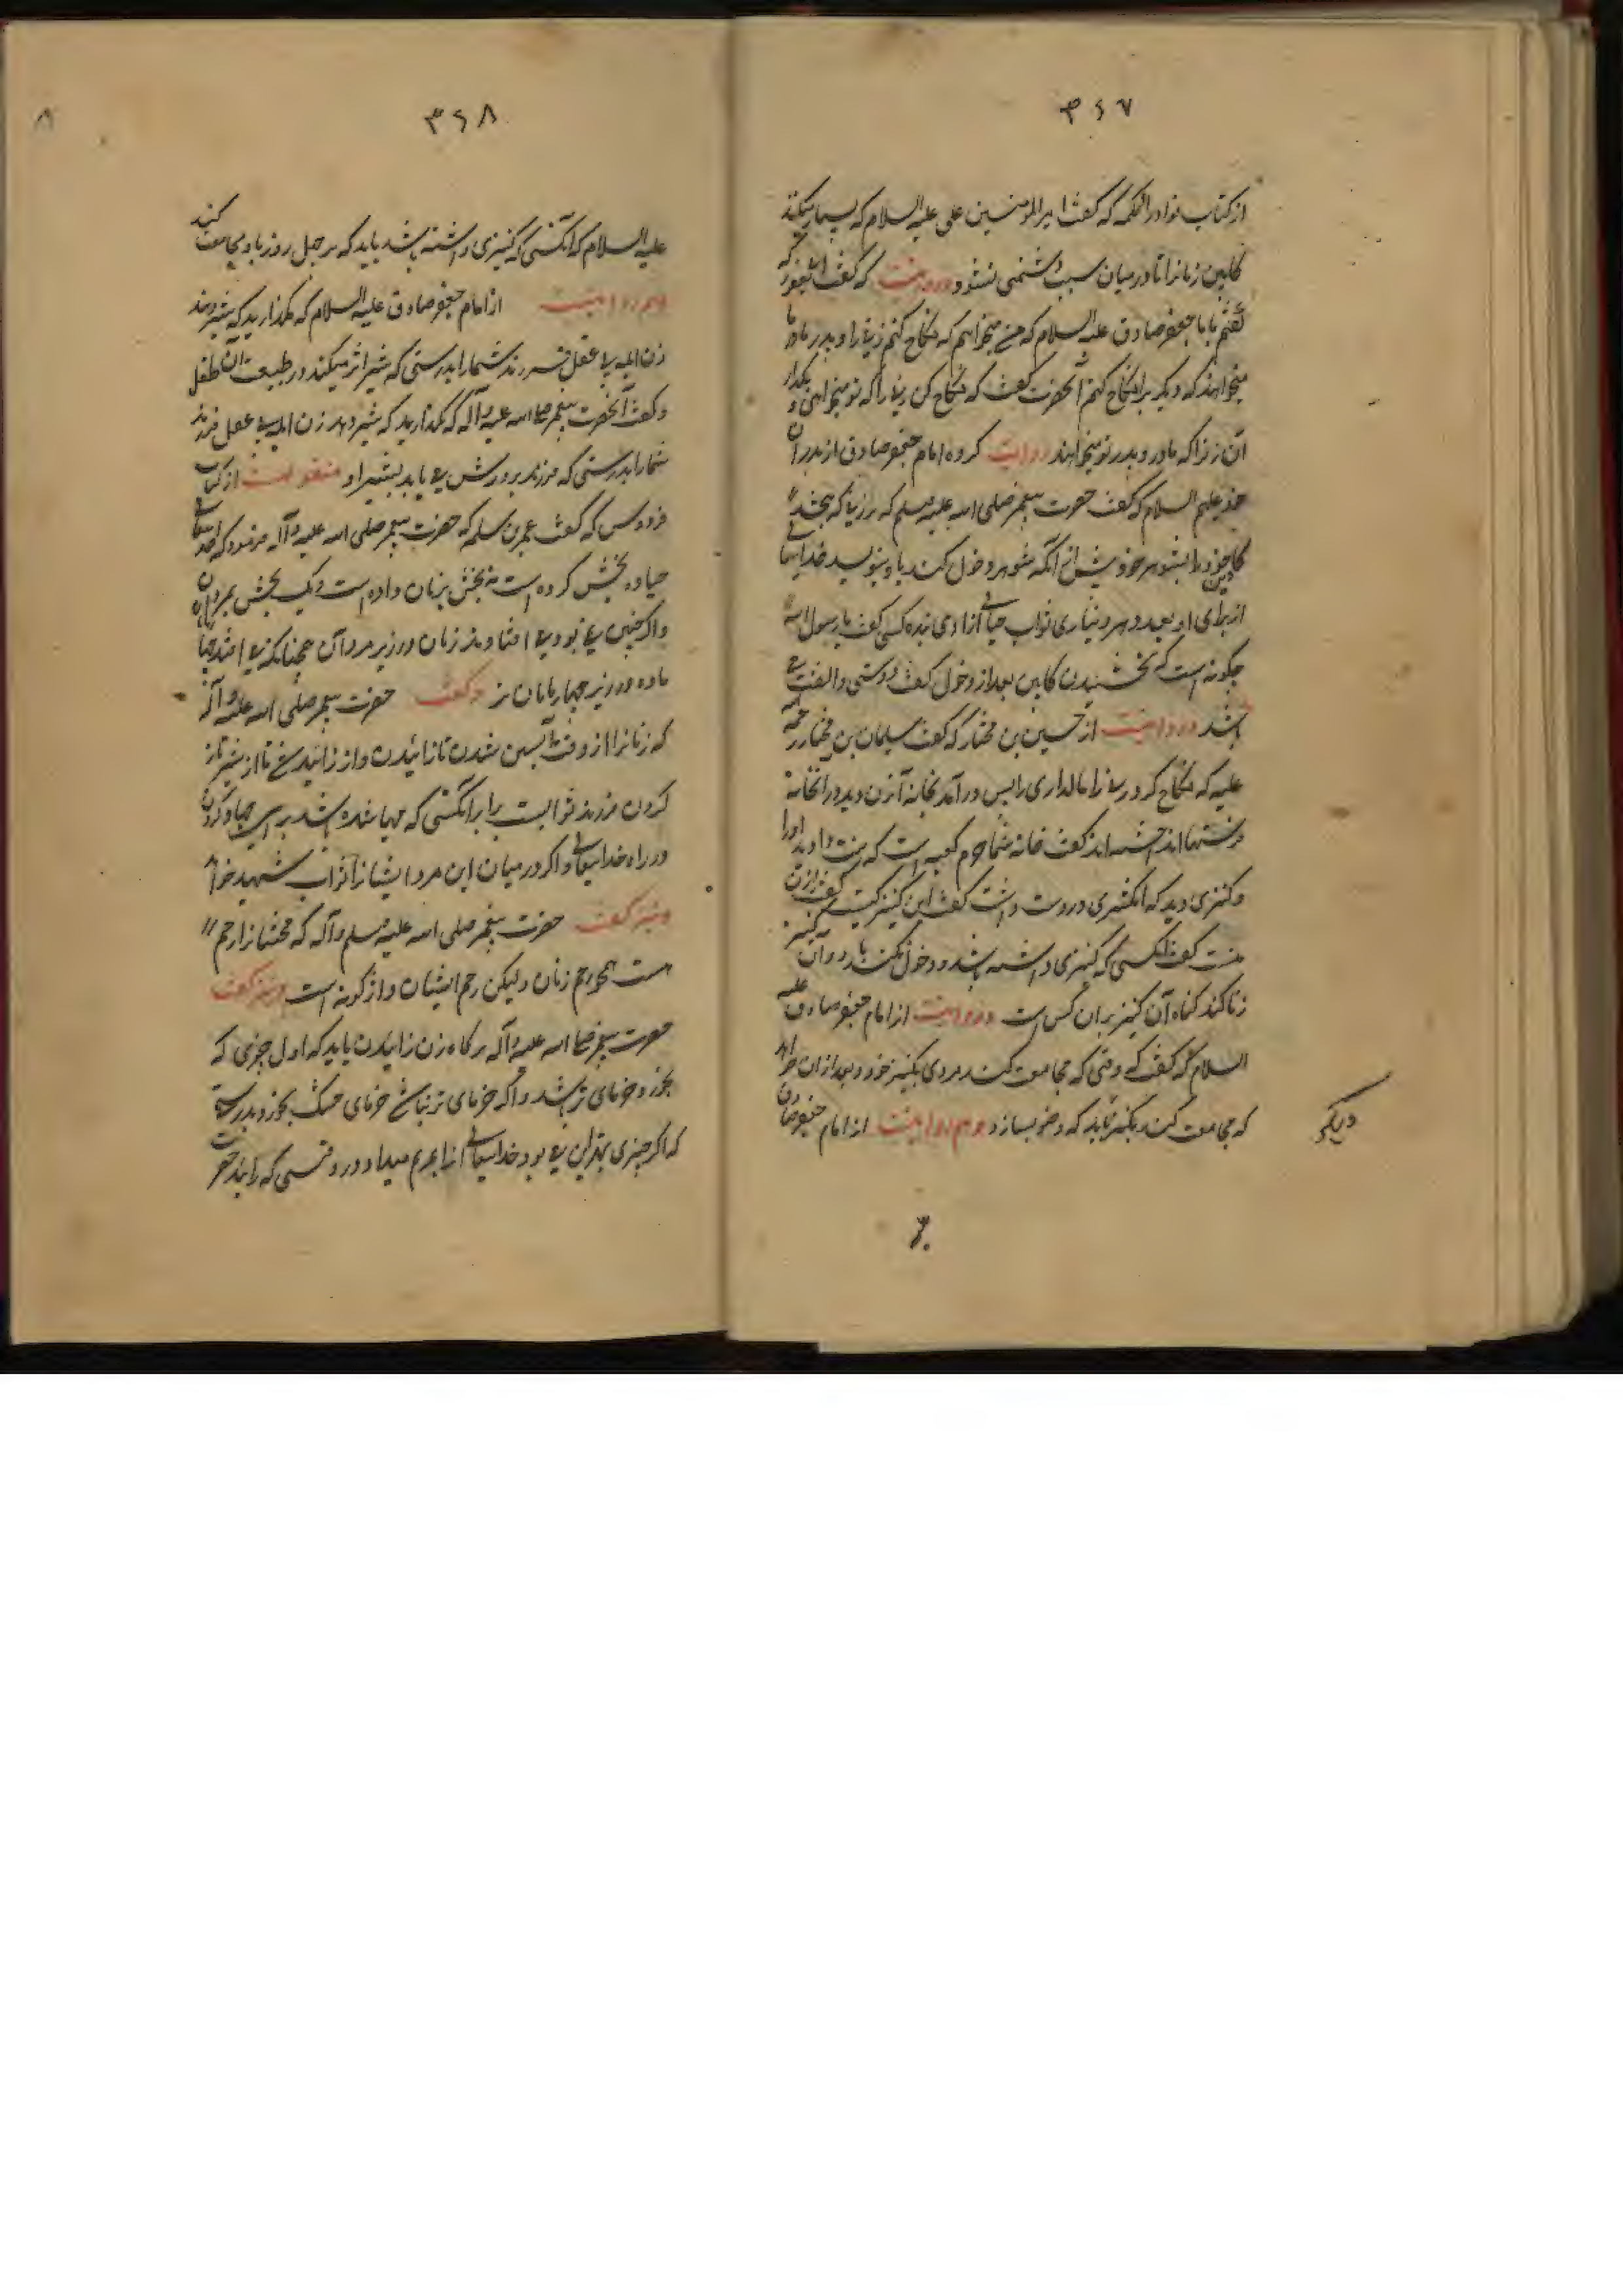 ۳۶۷
از کتاب نوادر الحکمه که گفت امیر المومنین علی علیه السلام که بسیار مکنید
کابین زنانرا تا در میان سبب دشمنی نشود و در روایت که گفت ابن یعفور که
گفتم بامام جعفر صادق علیه السلام که من میخواهم که نکاح کنم زنی را و پدر و مادر ما
میخواهند که دیگریرا نکاح کنم آنحضرت گفت که نکاح کن زنی را که تو میخواهی و بگذار
آن زنرا که مادر و پدر تو میخواهند روایت کرده امام جعفر صادق از پدران
خود علیهم السلام که گفت حضرت پیغمبر صلی الله علیه وسلم که هر زنیکه ببخشد
کابین خود را بشوهر خویش از آنکه شوهر دخول کند باو بنویسد خدایتعالی
از برای او بعدد هر دیناری ثواب آزادی بنده کسی گفت یا رسول الله
چگونه است که بخشیدن کابین بعد از دخول گفت دوستی و الفت
باشد در روایت از حسین بن مختار که گفت سلیمان بن مختار رحمه الله
علیه که نکاح کرد زن مالداری را پس درآمد بخانه آن زن و دید در آنخانه
فرشها انداخته اند گفت خانه شما حرم کعبه است که او را
و کنیزی دید که انگشتری در دست داشت گفت این کنیز کیست گفت از آن
منست گفت آنکسی که کنیزی داشته باشد و دخول نکند باو و آن کنیز
زنا کند گناه آن کنیز بر آن کس است و در روایت از امام جعفر صادق علیه
السلام که گفت که وقتی که مجامعت کند مردی بکنیز خود و بعد از آن خواهد
که مجامعت کند بکنیز دیگر باید که وضو بسازد و هم روایت از امام جعفر صادق
دیگر
۳۶۸
علیه السلام که آنکسی که کنیزی داشته باشد باید که هر چهل روز باو مجامعت کند
و هم روایت از امام جعفر صادق علیه السلام که مگذارید که شیر دهند
زن ابله بی عقل فرزند شما را بدرستی که شیر اثر میکند در طبیعت آن طفل
و گفت آنحضرت پیغمبر صلی الله علیه و آله که مگذارید که شیر دهد زن ابله بی عقل فرزند
شما را بدرستی که فرزند پرورش می یابد بشیر او منقولست از کتاب
فردوس که گفت عمر بن سلمه که حضرت پیغمبر صلی الله علیه و آله فرمود که خدایتعالی
حیا ده بخش کرده است نه بخش بزنان داده است و یک بخش بمردان
و اگر چنین نمی بود می افتادند زنان در زیر مردان همچنانکه می افتد چهارپایان
ماده در زیر چهارپایان نر و گفت حضرت پیغمبر صلی الله علیه و آله
که زنانرا از وقت آبستن شدن تا زائیدن و از زائیدن تا از شیر باز
کردن فرزند ثوابیست برابر آنکسی که مهیا شده باشد برای جهاد کردن
در راه خدایتعالی و اگر در میان این مرد ایشانرا ثواب شهید خواهد
و نیز گفت حضرت پیغمبر صلی الله علیه وسلم و آله که مخنثانرا رحم
هست همچو رحم زنان ولیکن رحم ایشان واژگونه است و نیز گفت
حضرت پیغمبر صلی الله علیه و آله هرگاه زن زائیدن باید که اول چیزی که
بخورد خرمای تر باشد و اگر خرمای تر نباشد خرمای خشک بخورد بدرستی
که اگر چیزی بهتر ازین می بود خدایتعالی آنرا بمریم میداد در وقتی که زائید حضرت